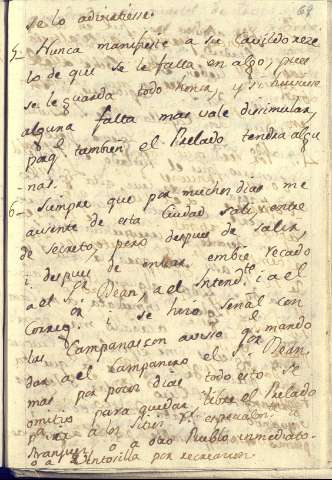 68
se lo advirtiesse.
5_ Nunca manifesté a su Cavildo reze
lo de que se le falta en algo, pues
se le guarda todo honor, y si huviese
alguna falta mas vale disimular,
porq.e tambien el Prelado tendrá algu
nas.
6_ Siempre que por muchos dias me
ausente de esta Ciudad salí entre
de secreto, pero despues de salir,
i despues de entrar embié recado
a el S.r Dean, a el Intend.te i a el
Correg.or i se hizo señal con
las Campanas con aviso q. mando
dar a el campanero el S.r Dean.
mas por pocos dias todo esto se
omitió para quedar libre el Prelado
para ir a los sitios R.s especialm.te
Aranjuez o a otro Pueblo inmediato.
o a Ventosilla por recreacion.